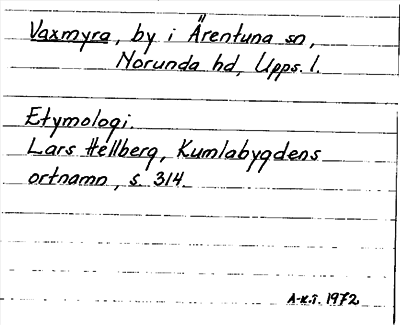 Vaxmyra, by i Ärentuna sn,
Norunda hd, Upps. l.
Etymologi
Lars Hellberg, Kumlabygdens
ortnamn, s. 314.
A-K.T. 1972